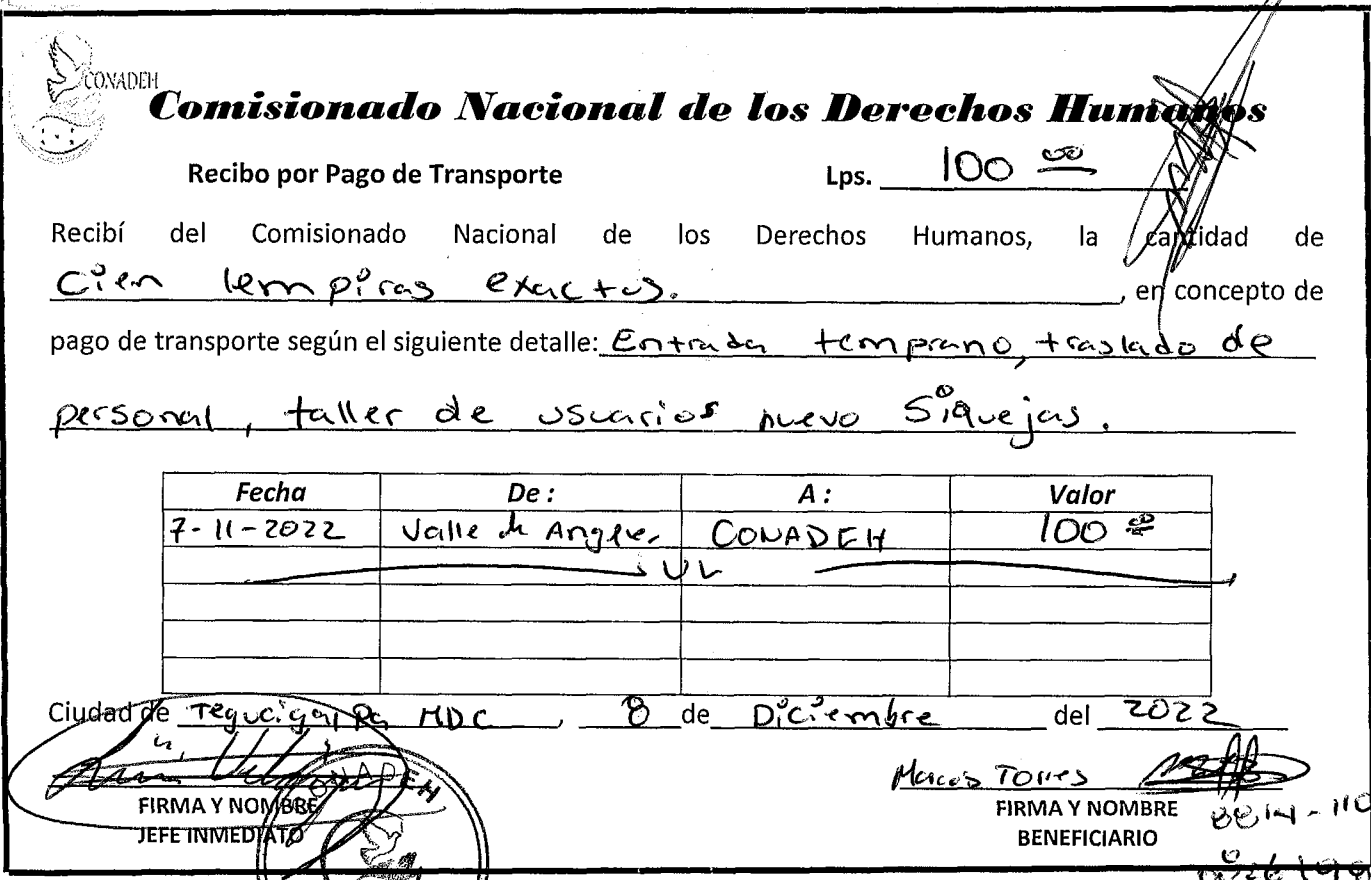 CONADEH
Comisionado Nacional de los Derechos Humanos
Recibo por Pago de Transporte Lps. 100 00
Recibí del Comisionado Nacional de los Derechos Humanos, la cantidad de
Cien lempiras exactos. , en concepto de
pago de transporte según el siguiente detalle: Entrada temprano, traslado de
personal, taller de usuarios nuevo Siquejas.
Fecha De : A : Valor
7-11-2022 Valle de Angeles CONADEH 100 00
UL
Ciudad de Tegucigalpa MDC , 8 de Diciembre del 2022
Marcos Torres
FIRMA Y NOMBRE FIRMA Y NOMBRE
JEFE INMEDIATO BENEFICIARIO
CONADEH